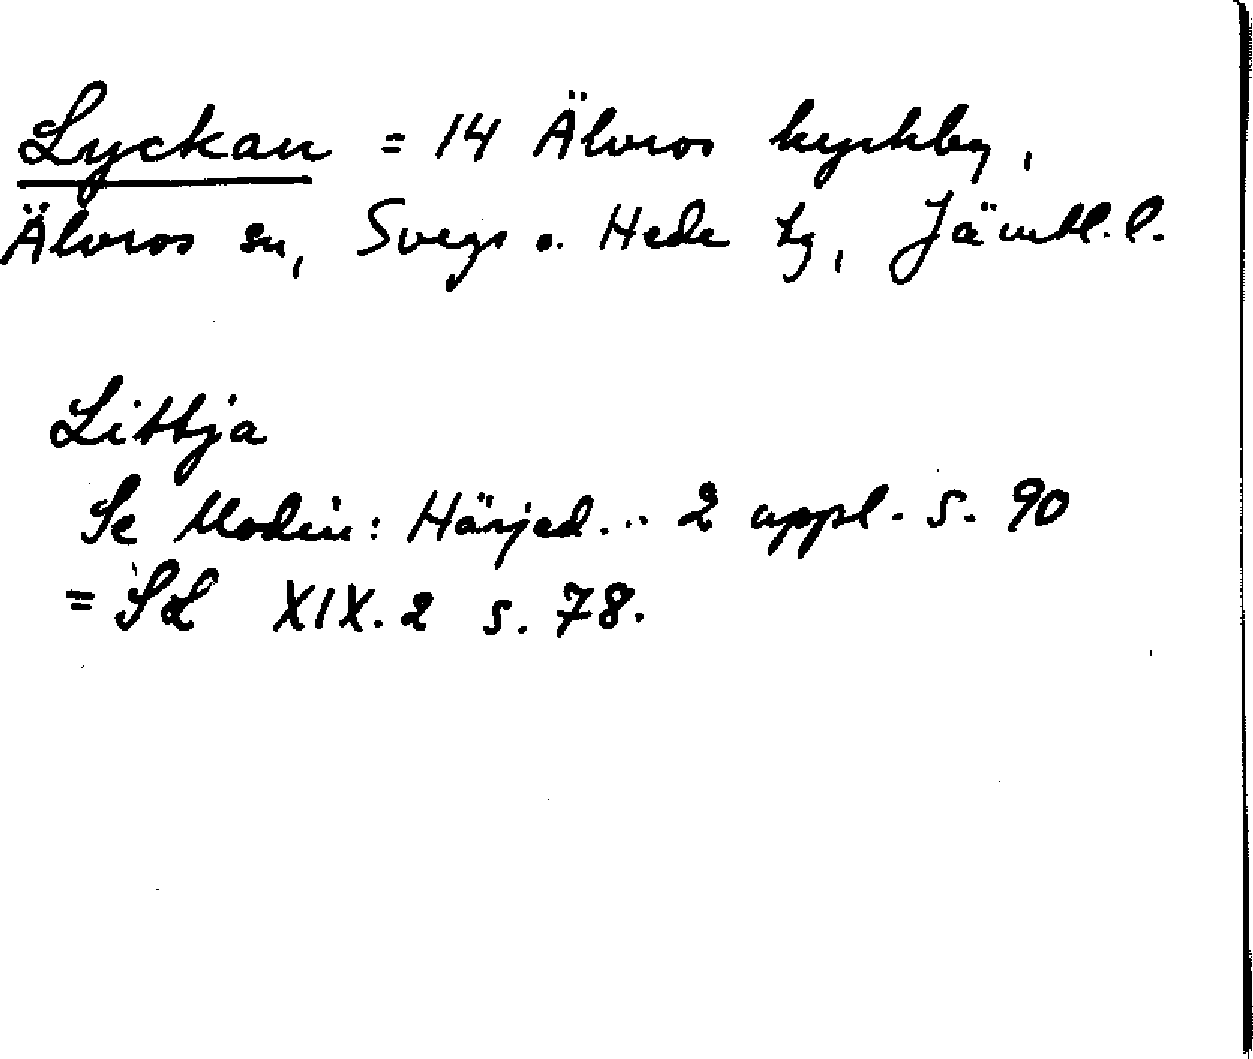 Lyckan = 14 Älvros kyrkby,
Älvros sn, Svegs o. Hede tg, Jämtl. l.
Littja
Se Modin: Härjed... 2 uppl. s. 90
= SL XIX. 2 s. 78.